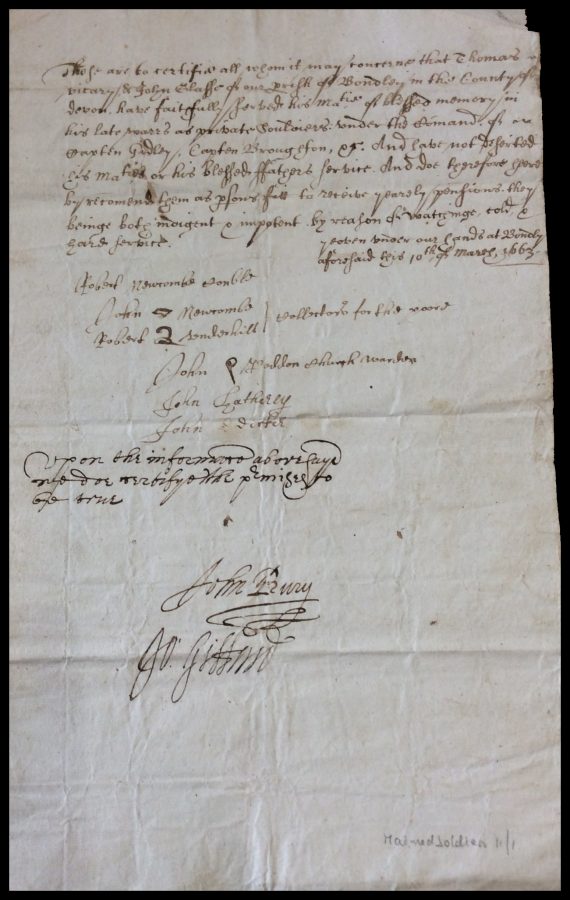 These are to certifie all whom it may concerne that Thomas
vicary & John Glasse of our prish of Bondley in the County of
devon have faitfully served his Matie of blessed memory in
his late warrs as private Souldiers under the Comand of
Capten Gidley, Capten Broughton, &c. And have not deserted
his Maties or his blessed ffathers service. And doe therefore here
by recomend them as psons fitt to receive yearely pensions they
beinge both indigent & impotent by reason of watchinge, cold, &
hard service.
yeven under our hands at Bondly
aforesaid this 10th of March, 1663
Robert Newcombe Conble
John Newcombe
Robert Underhill
Collectors for the poore
John Weddon Church warden
John
John
Upon the informacon abovesayd
we doe certifye the premises to
be true
John
Jo: Giffard
Maimed soldiers 11/1